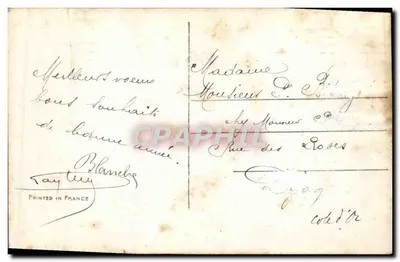 Meilleurs voeux
bons souhaits
de bonne année.
Blanche
PRINTED IN FRANCE
Madame
Monsieur P.
chez Monsieur
Rue des Roses
Dijon
Cote d'Or
CPAPHIL